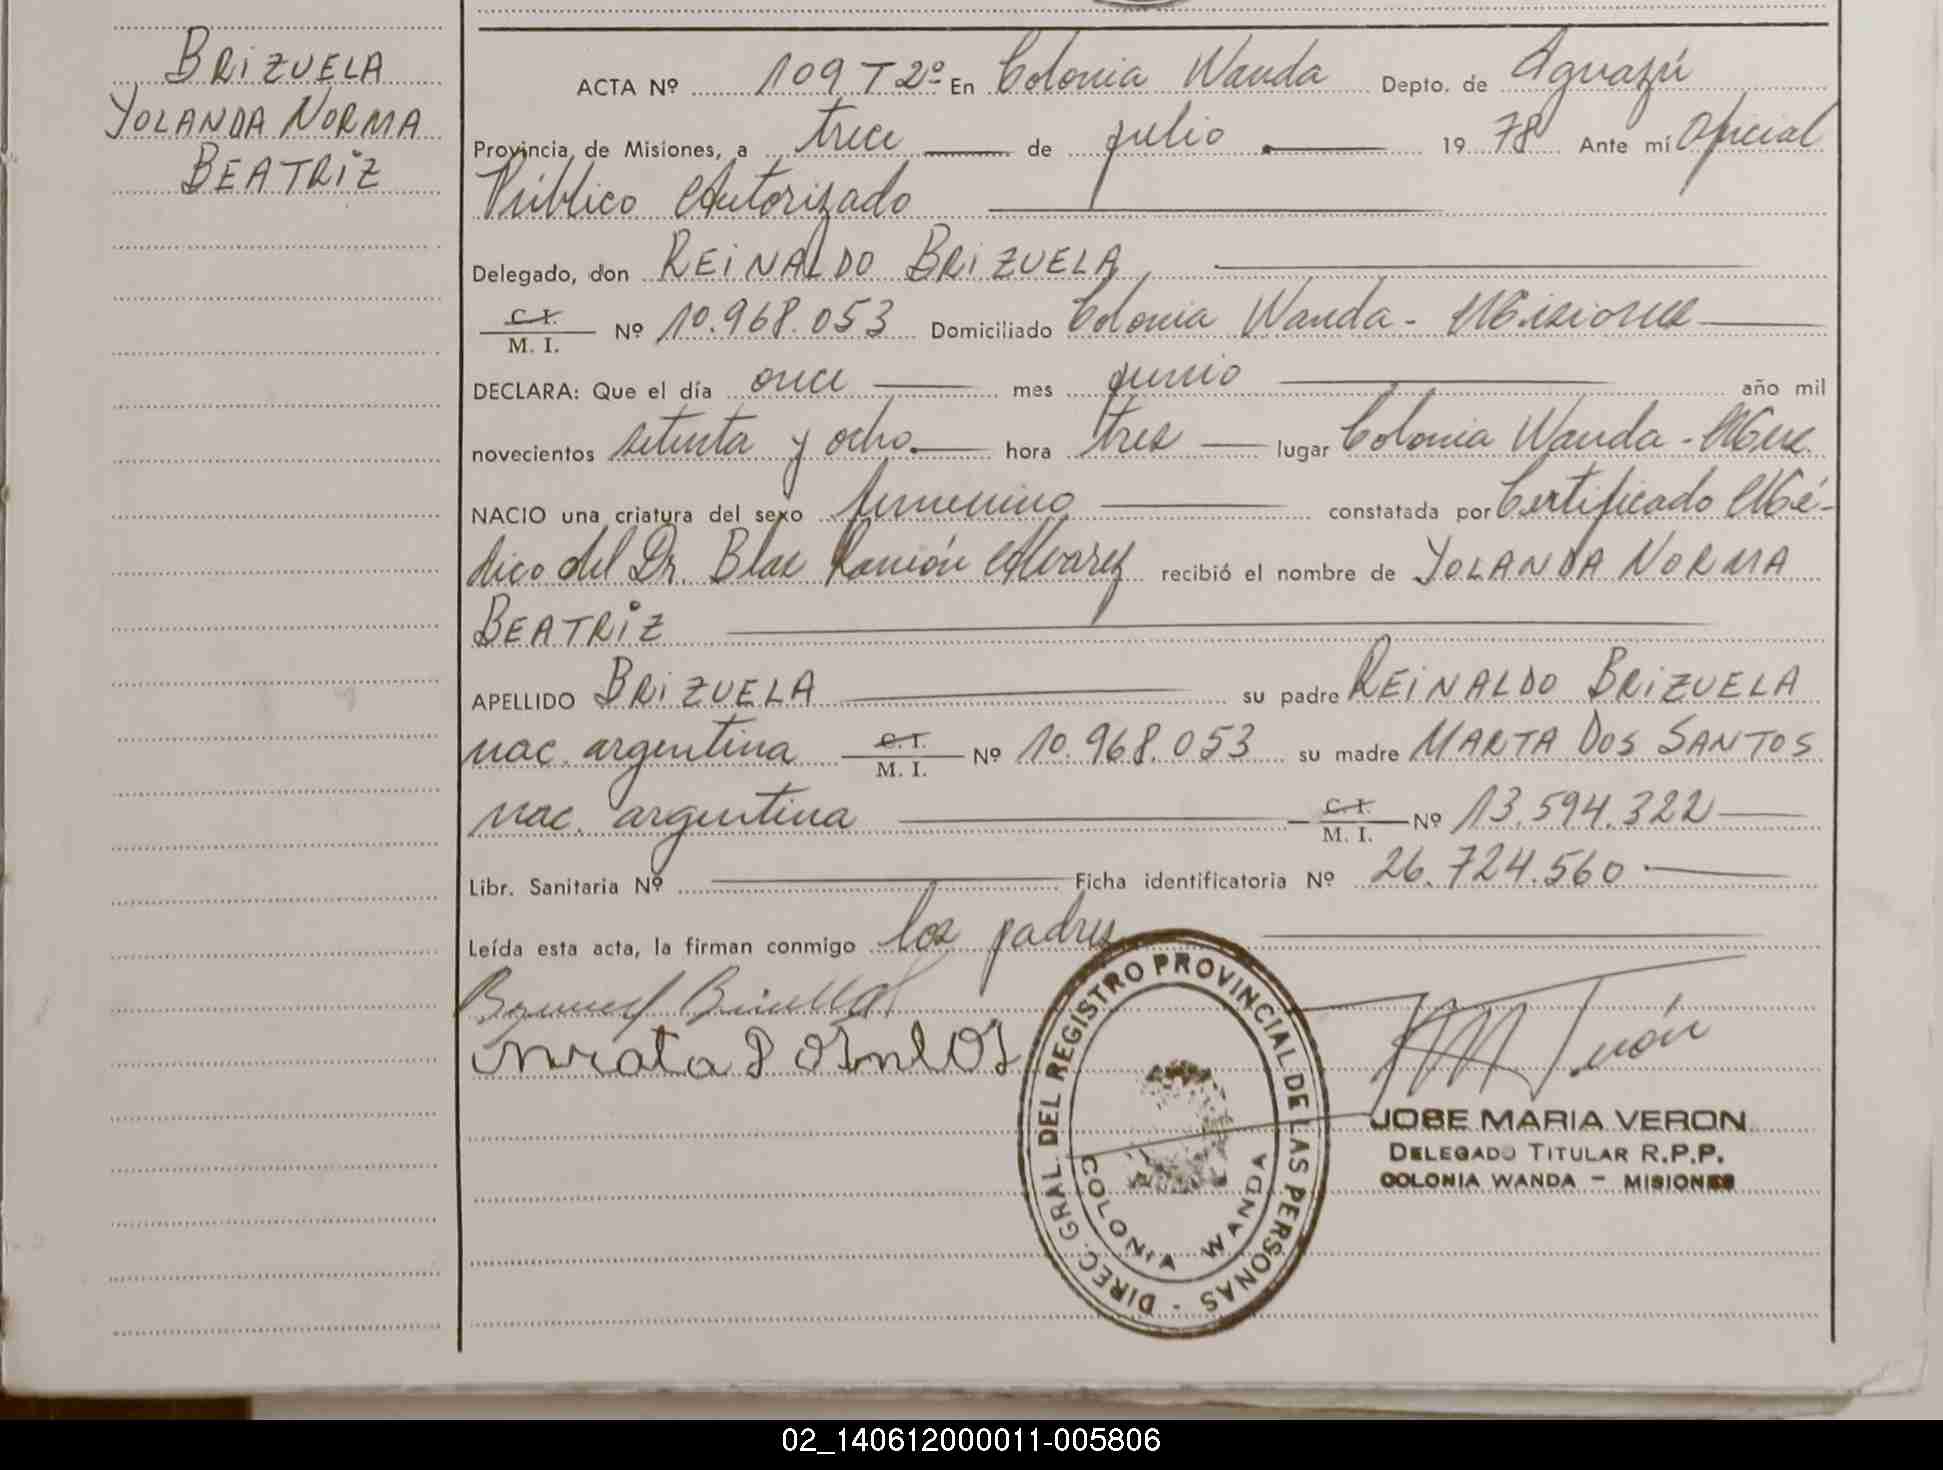 BRIZUELA
YOLANDA NORMA
BEATRIZ
ACTA Nº 109 T 2º En Colonia Wanda Depto. de Iguazú
Provincia de Misiones, a trece de julio 1978 Ante mí Oficial
Público Autorizado
Delegado, don REINALDO BRIZUELA,
C. I.
M. I. Nº 10.968.053 Domiciliado Colonia Wanda - Misiones
DECLARA: Que el día once mes junio año mil
novecientos setenta y ocho hora tres lugar Colonia Wanda - Mnes.
NACIO una criatura del sexo femenino constatada por Certificado Mé-
dico del Dr. Blas Ramón Alvarez recibió el nombre de YOLANDA NORMA
BEATRIZ
APELLIDO BRIZUELA su padre REINALDO BRIZUELA
nac. argentina C. I. M. I. Nº 10.968.053 su madre MARTA DOS SANTOS
nac. argentina C. I. M. I. Nº 13.594.322
Libr. Sanitaria Nº Ficha identificatoria Nº 26.724.560
Leída esta acta, la firman conmigo los padres
DIREC. GRAL. DEL REGISTRO PROVINCIAL DE LAS PERSONAS -
COLONIA WANDA
JOSE MARIA VERON
DELEGADO TITULAR R.P.P.
COLONIA WANDA - MISIONES
02_140612000011-005806